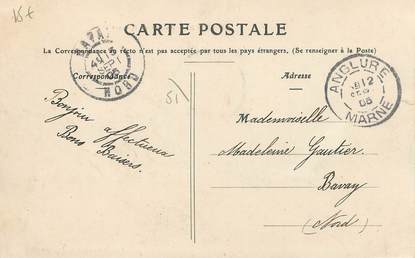 15f
CARTE POSTALE
La Correspondance au recto n'est pas acceptée par tous les pays étrangers, (Se renseigner à la Poste)
Correspondance
Adresse
BAVAY
NORD
ANGLURE
12
MARNE
51
Bonjour affectueux
Bons Baisers.
Mademoiselle
Madeleine Gautier
Bavay
(Nord)